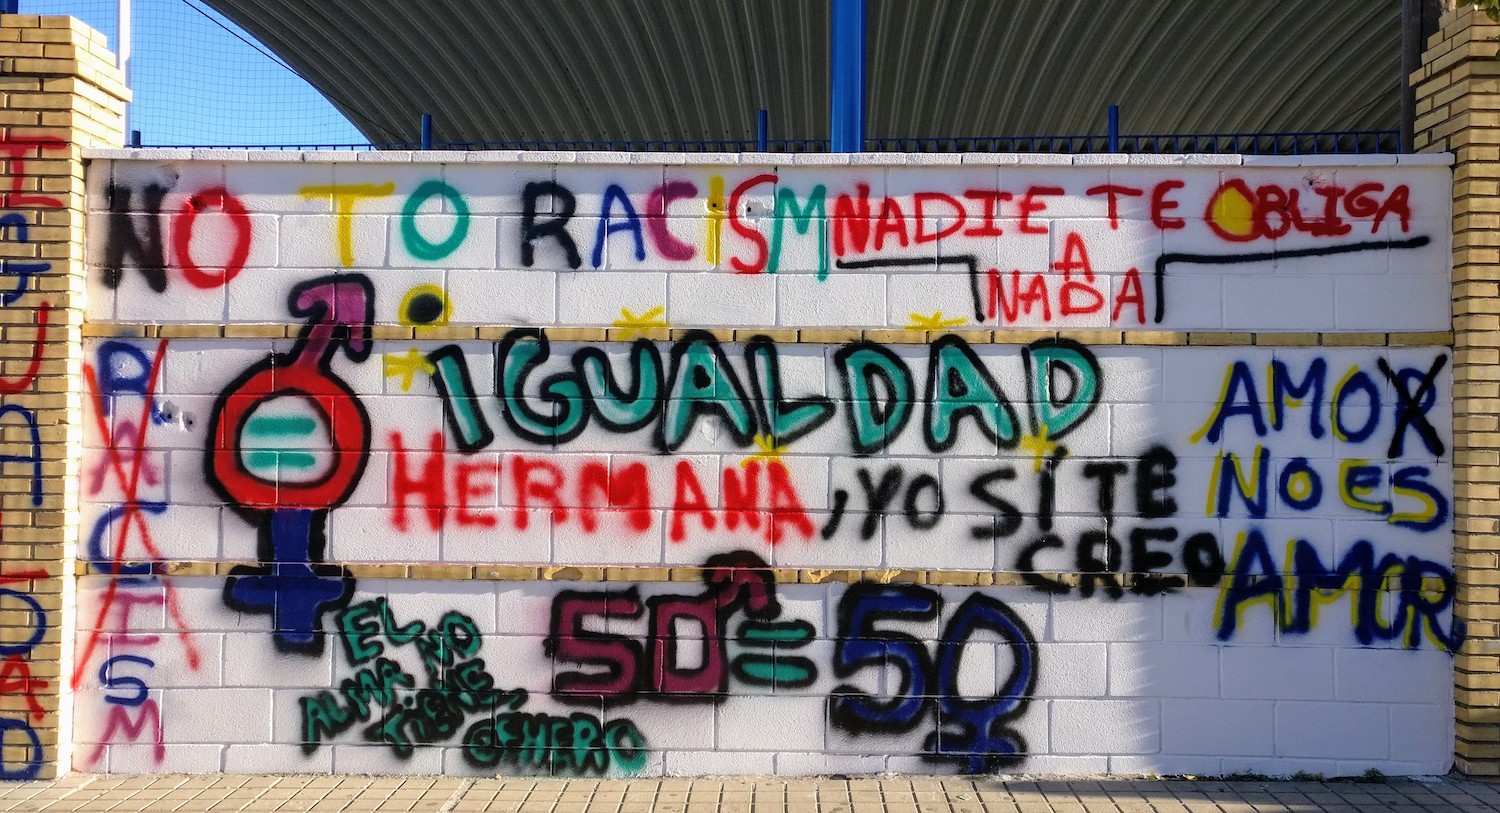 NO TO RACISM
NADIE TE OBLIGA
A
NADA
IGUALDAD
HERMANA, YO SÍ TE
CREO
AMOR
NO ES
AMOR
RACISM
EL
ALMA NO
TIENE
GENERO
50=50
IGUALDAD